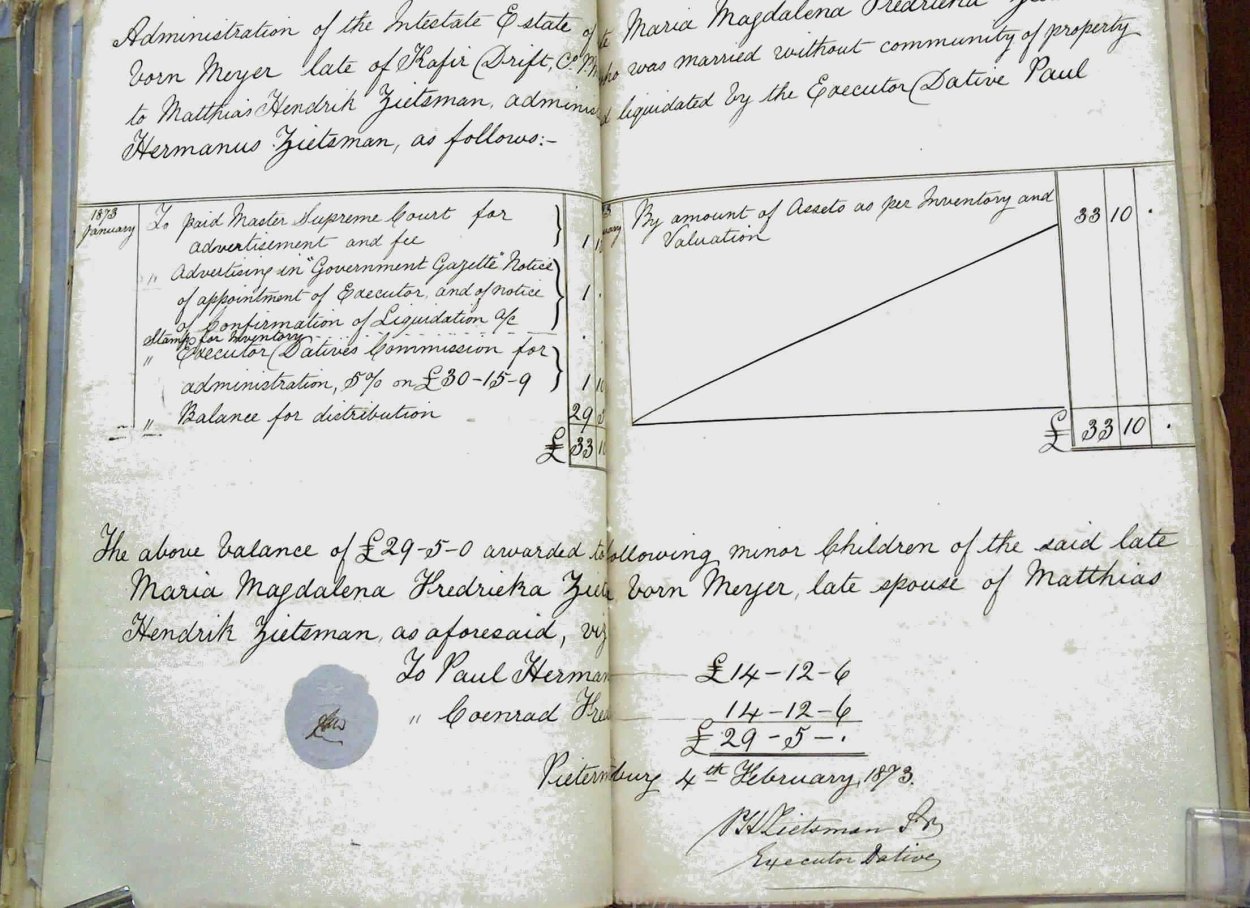 Administration of the Intestate Estate of Maria Magdalena Fredricka
born Meyer late of Kafir Drift, who was married without community of property
to Matthias Hendrik Zietsman, liquidated by the Executor Dative Paul
Hermanus Zietsman, as follows:-
1873
January
To paid Master Supreme Court for
advertisement and fee
1
" Advertising in "Government Gazette" Notice
of appointment of Executor, and of notice
of Confirmation of Liquidation a/c
1 .
Stamp for Inventory
" Executor Dative's Commission for
administration, 5% on £30-15-9
1
" Balance for distribution
29
£ 33
By amount of Assets as per Inventory and
Valuation
33 10 .
£ 33 10 .
The above balance of £29-5-0 awarded following minor Children of the said late
Maria Magdalena Fredricka born Meyer, late spouse of Matthias
Hendrik Zietsman, as aforesaid, viz
To Paul Herman £14-12-6
" Coenrad 14-12-6
£29-5-.
4th February, 1873.
P H Zietsman
Executor Dative